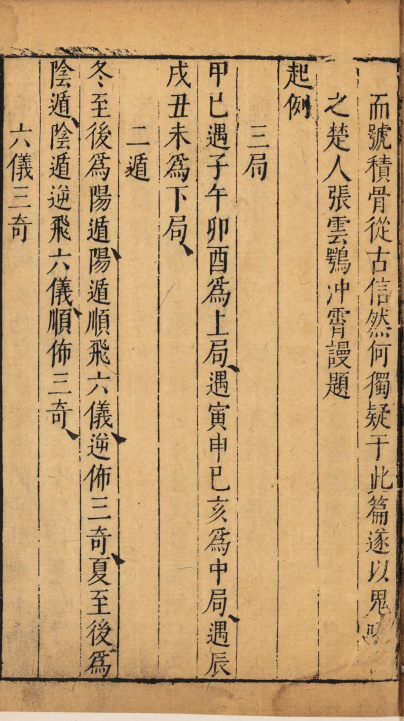 而號積骨從古信然何獨疑于此篇遂以鬼
之楚人張雲鶚冲霄謾題
起例
三局
甲巳遇子午卯酉爲上局、遇寅申巳亥爲中局、遇辰
戌丑未爲下局、
二遁
冬至後爲陽遁、陽遁順飛六儀、逆佈三奇、夏至後爲
陰遁、陰遁逆飛六儀、順佈三奇、
六儀三奇